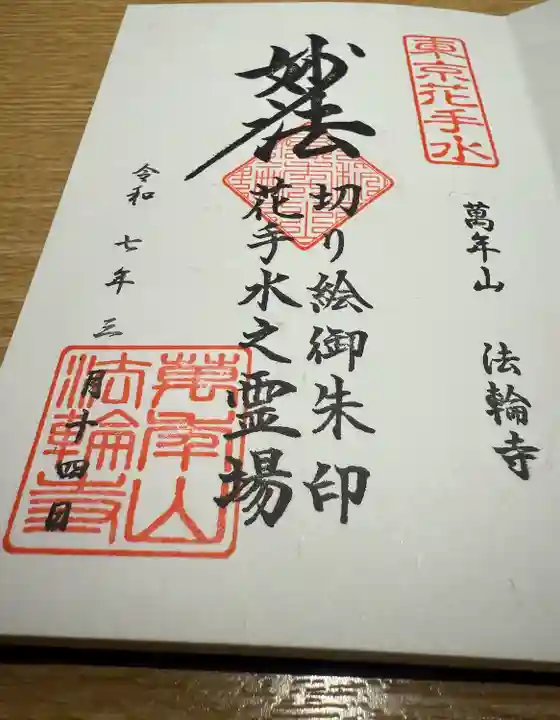 東京花手水
萬年山 法輪寺
妙法
切り絵御朱印
花手水之霊場
令和七年三月十四日
萬年山
法輪寺